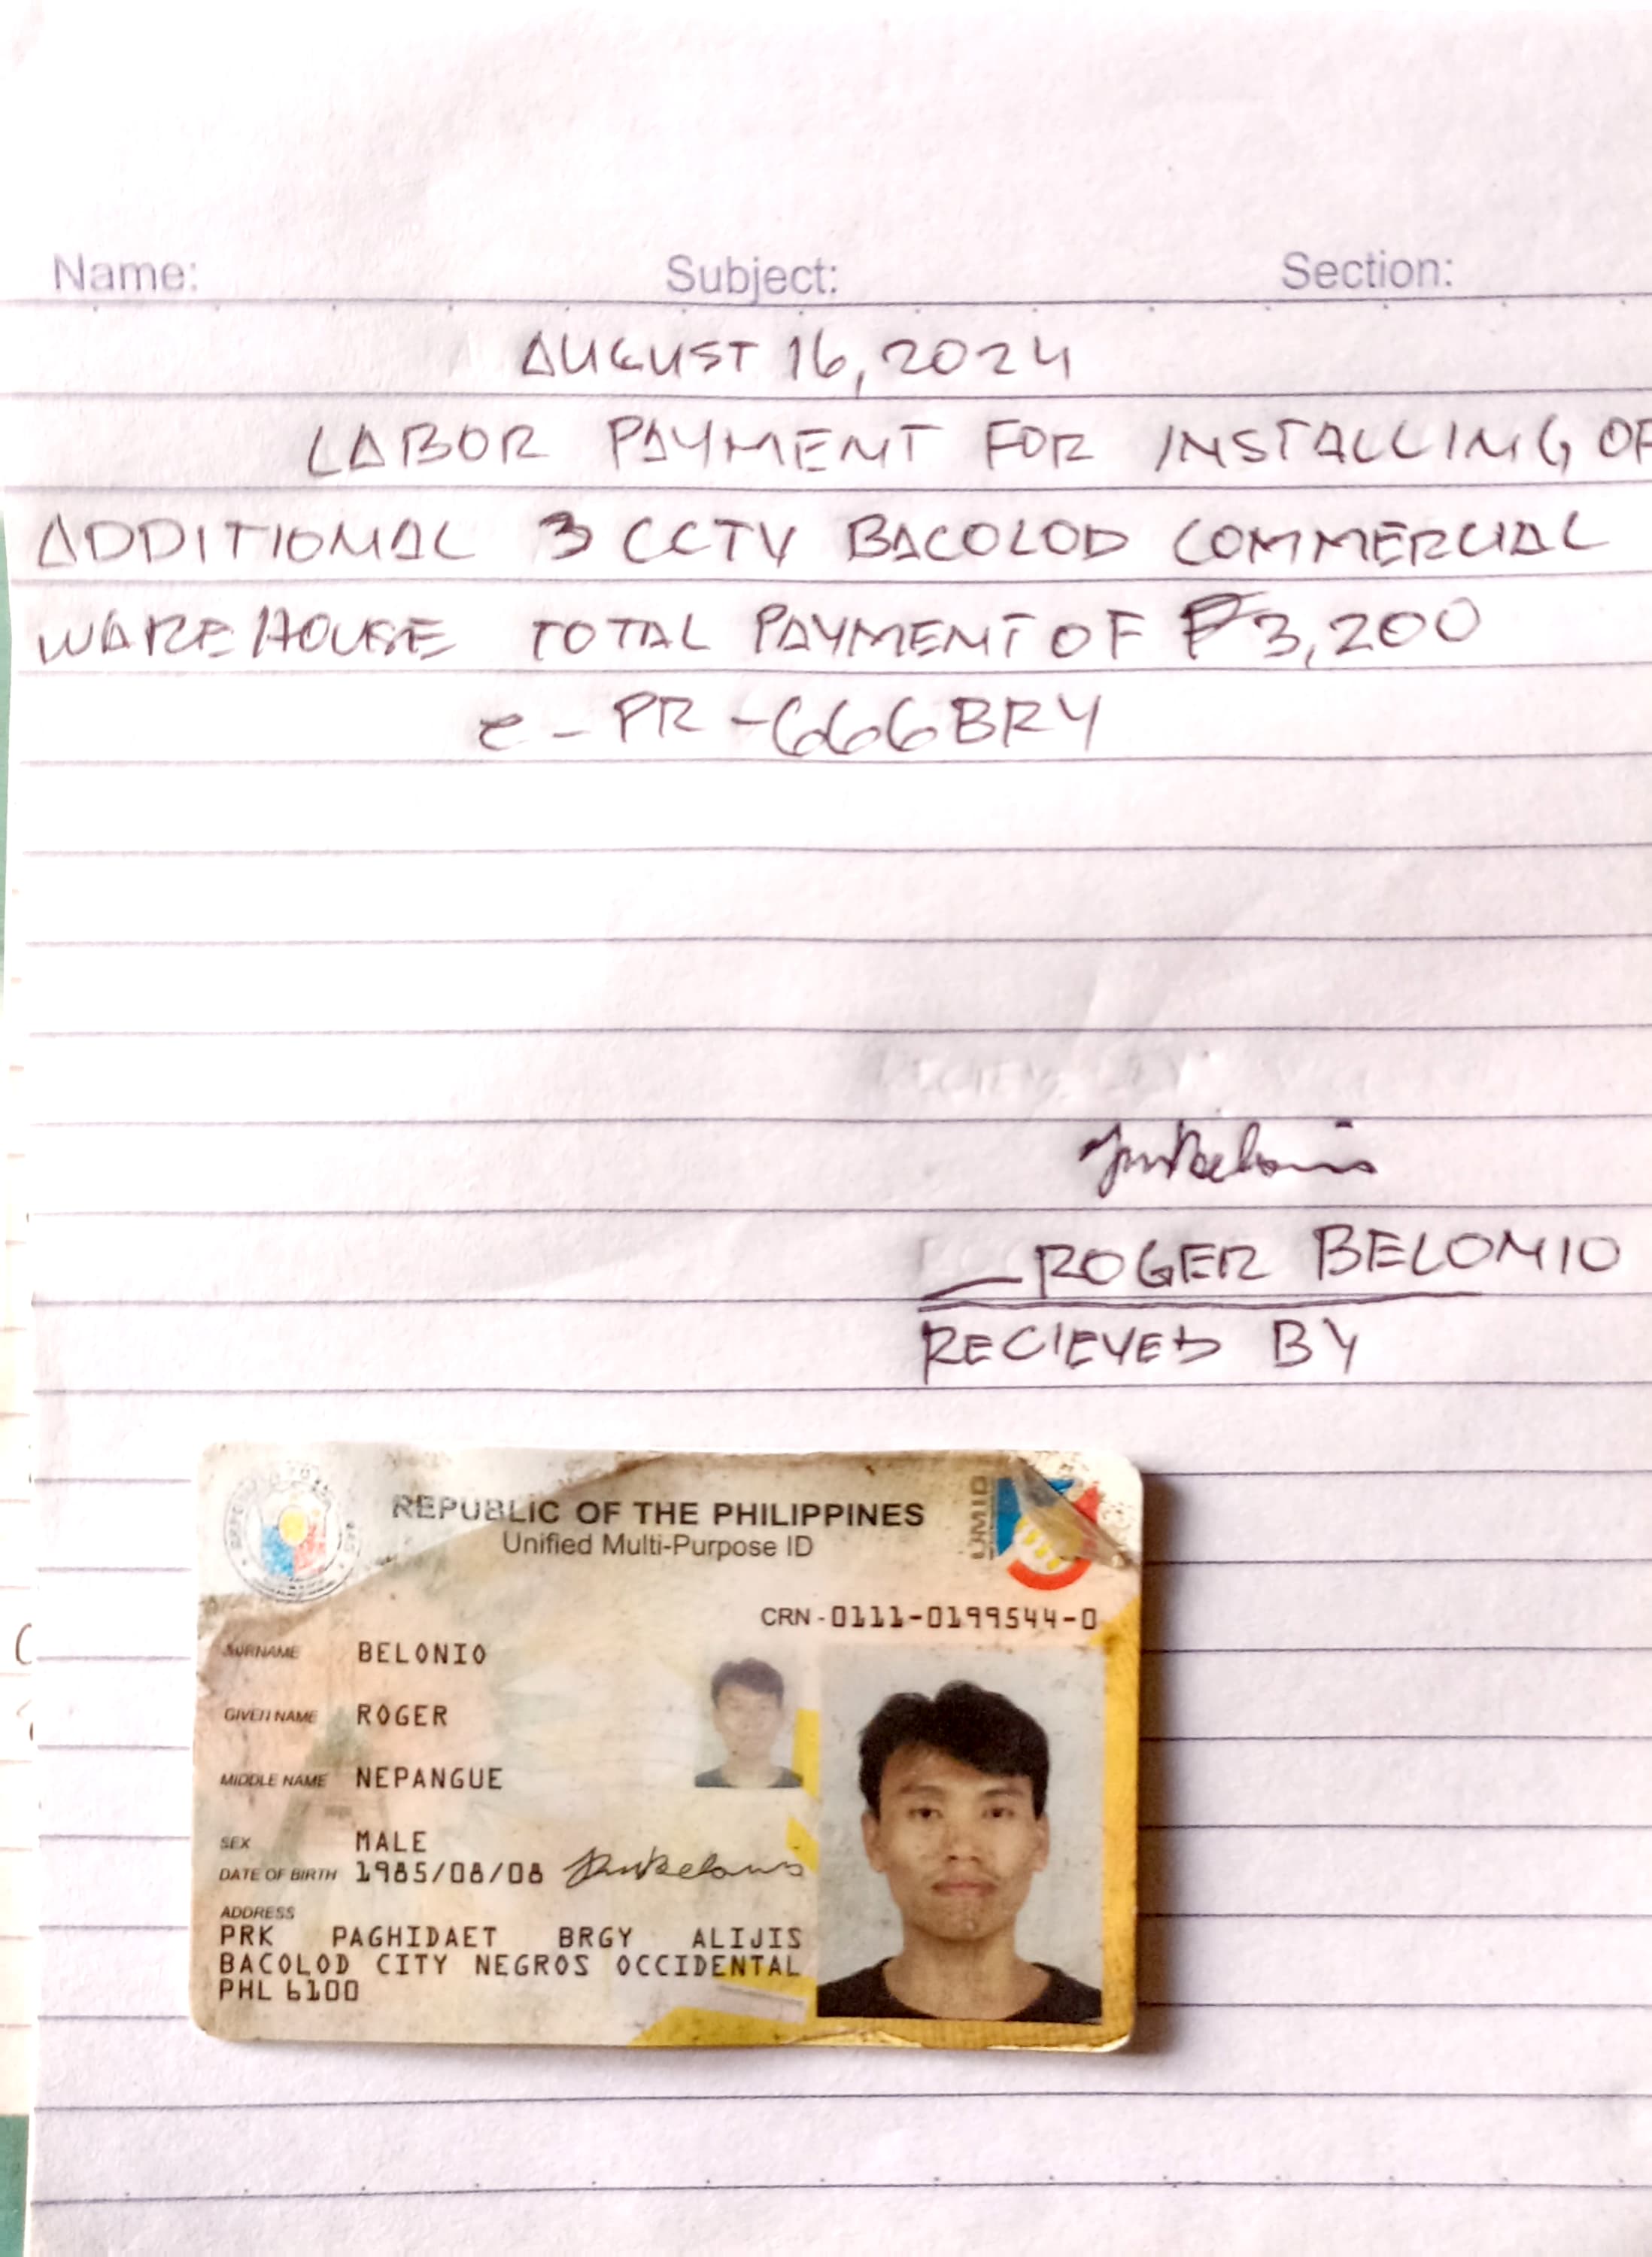 Name: Subject: Section:
AUGUST 16, 2024
LABOR PAYMENT FOR INSTALLING OF
ADDITIONAL 3 CCTV BACOLOD COMMERCIAL
WAREHOUSE TOTAL PAYMENT OF ₱3,200
e-PR-666BRY
ROGER BELONIO
RECIEVED BY
REPUBLIC OF THE PHILIPPINES
Unified Multi-Purpose ID
UMID
CRN - 0111-0199544-0
SURNAME BELONIO
GIVEN NAME ROGER
MIDDLE NAME NEPANGUE
SEX MALE
DATE OF BIRTH 1985/08/08
ADDRESS
PRK PAGHIDAET BRGY ALIJIS
BACOLOD CITY NEGROS OCCIDENTAL
PHL 6100